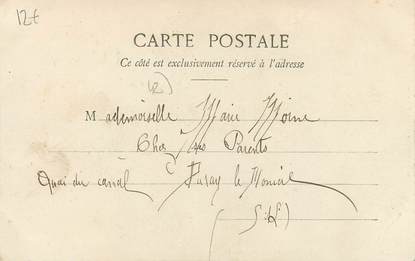 12€
CARTE POSTALE
Ce côté est exclusivement réservé à l'adresse
Mademoiselle Marie Moine
Chez ses Parents
Quai du canal Paray le Monial
(S.-L.)